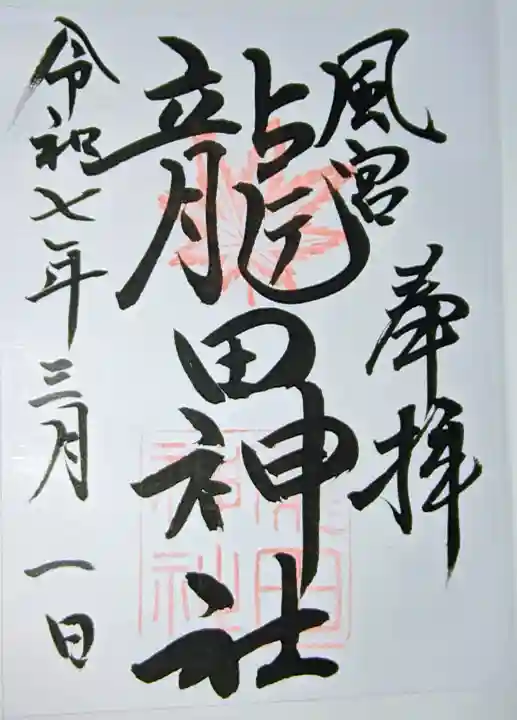 奉拝
風宮
龍田神社
令和七年三月一日
龍田
神社